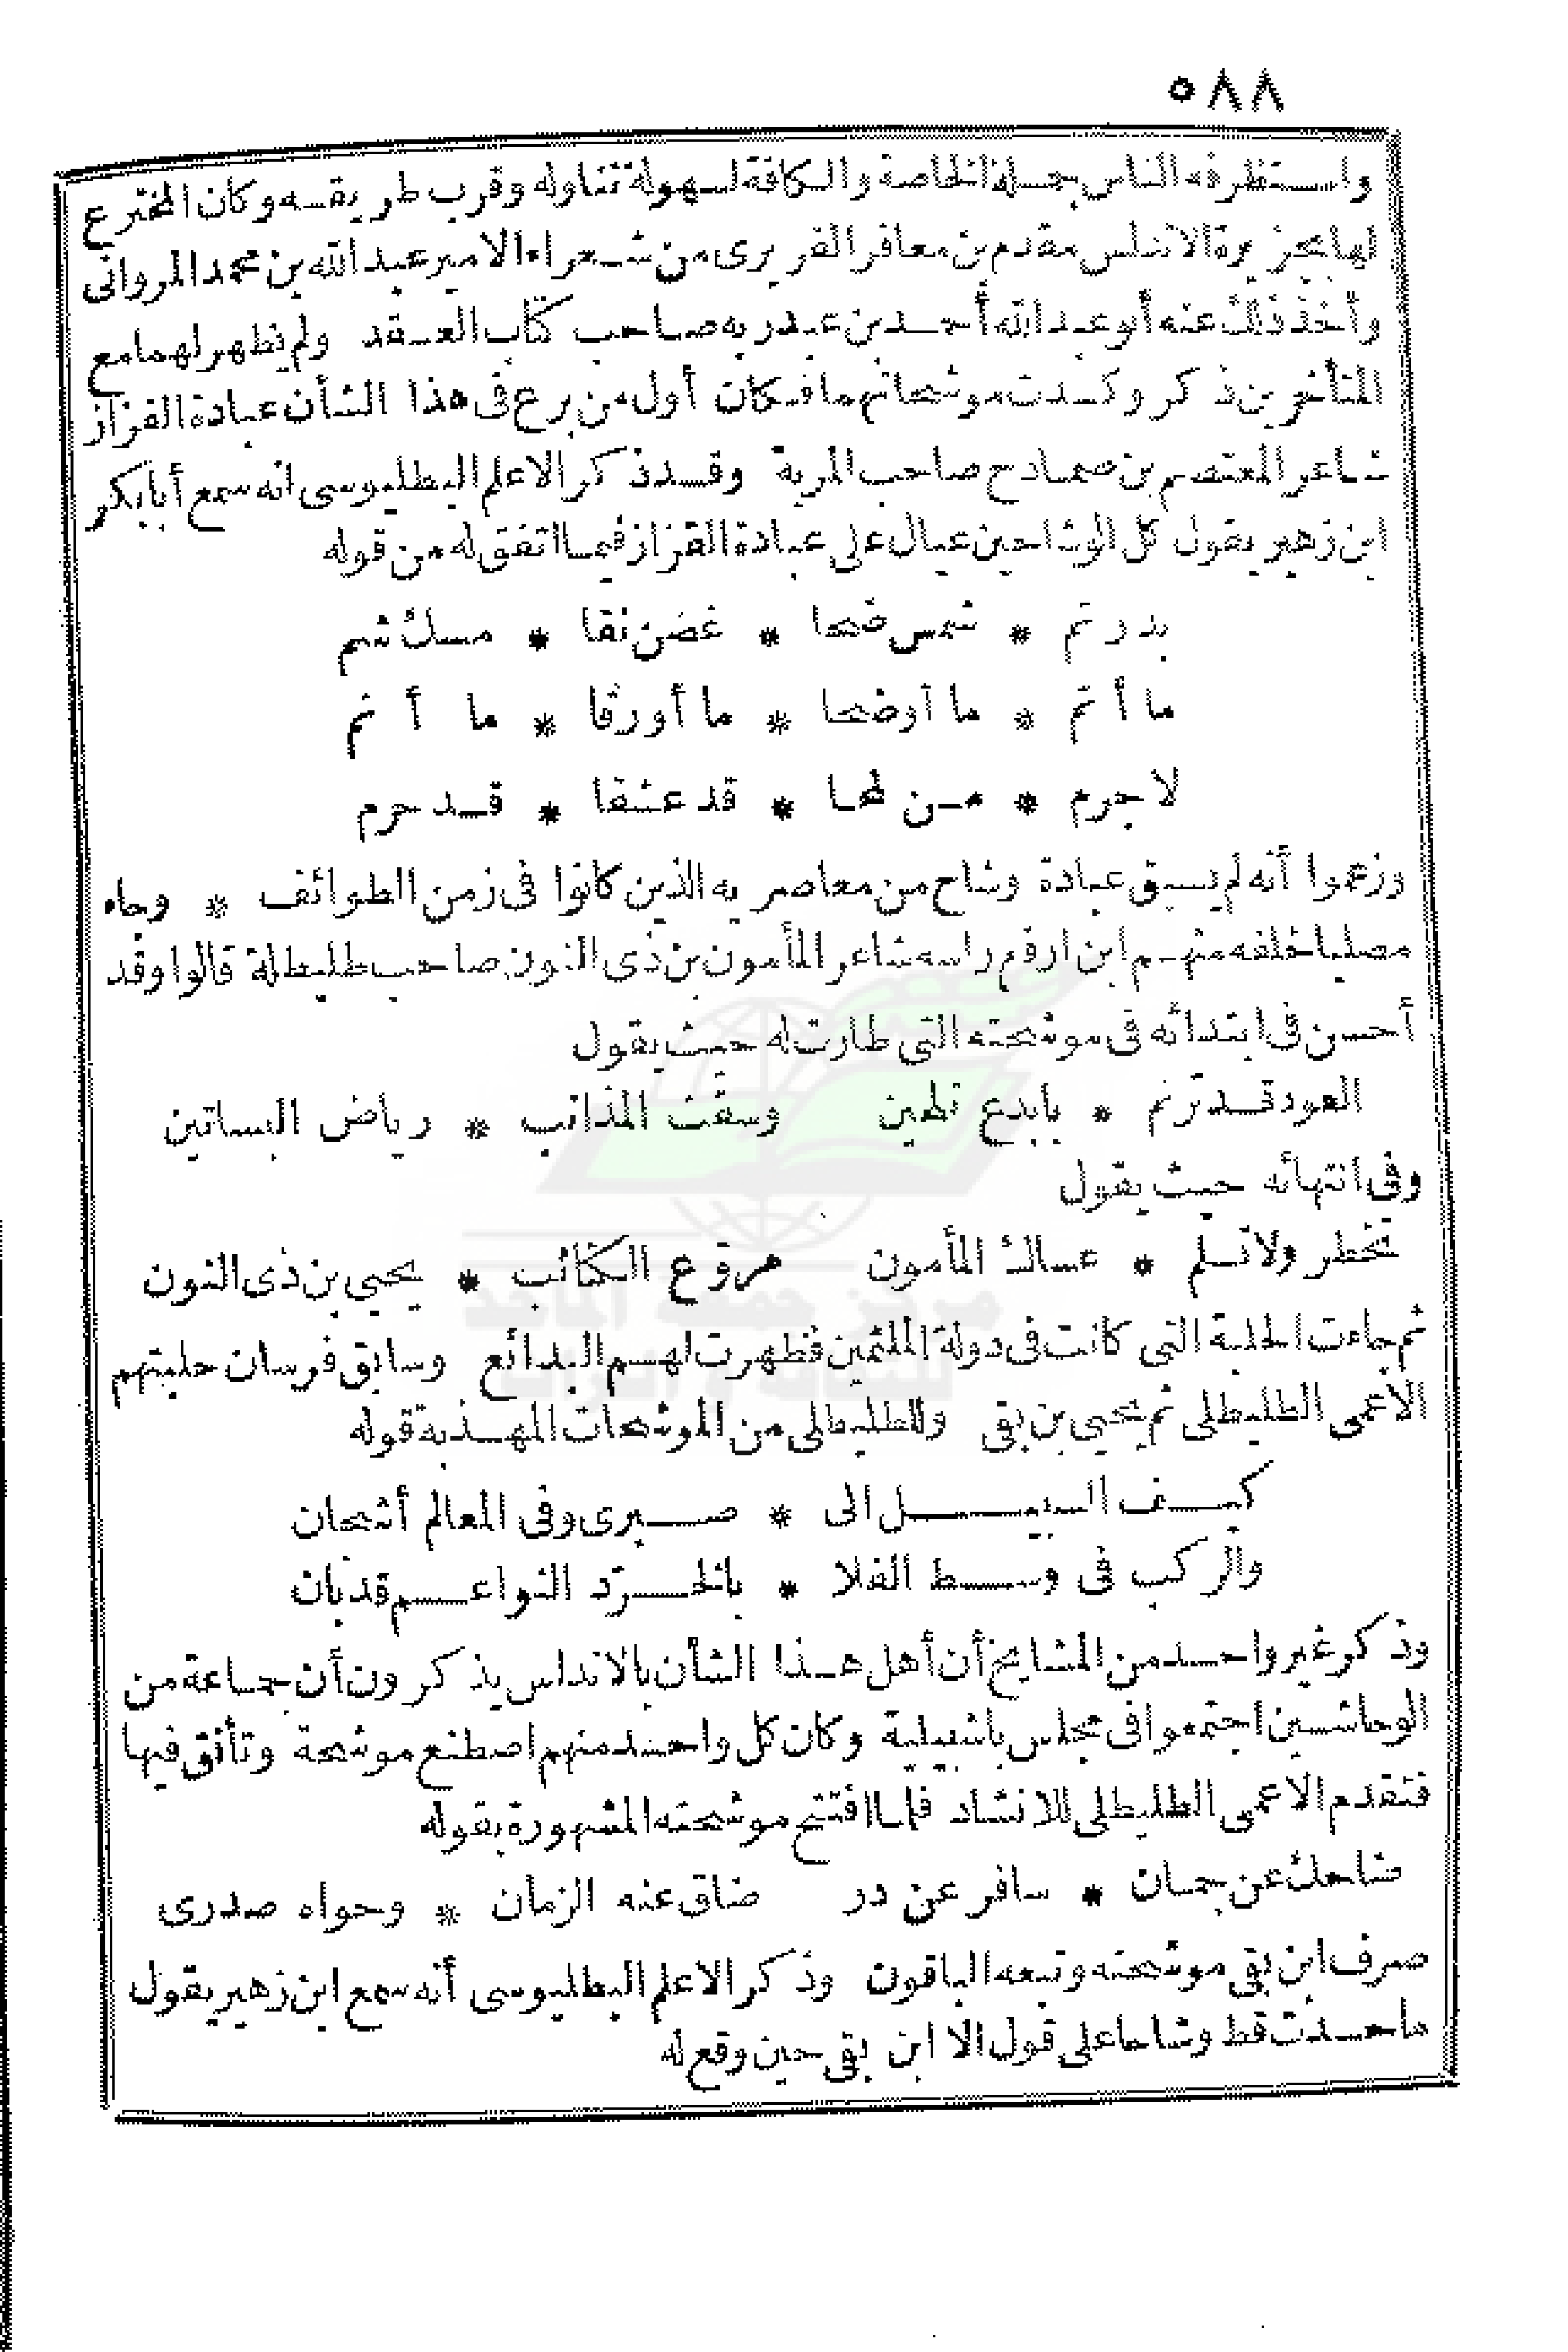 ٥٨٨
واستظرفه الناس بجملة الخاصة والكافة لسهولة تناوله وقرب طريقه وكان المخترع
لها بجزيرة الاندلس مقدم بن معافر الفريرى من شعراء الامير عبد الله بن محمد المروانى
وأخذ ذلك عنه أبو عبد الله أحمد بن عبد ربه صاحب كتاب العقد ولم يظهر لهما مع
المتأخرين ذكر وكسدت موشحاتهما فكان أول من برع فى هذا الشأن عبادة القزاز
شاعر المعتصم بن صمادح صاحب المرية وقد ذكر الاعلم البطليوسى انه سمع أبا بكر
ابن زهير يقول كل الوشاحين عيال على عبادة القزاز فيما اتفق له من قوله
بدر تم * شمس ضحا * غصن نقا * مسك شم
ما أتم * ما أوضحا * ما أورقا * ما أنم
لا جرم * من لمحا * قد عشقا * قد حرم
وزعموا أنه لم يسبق عبادة وشاح من معاصريه الذين كانوا فى زمن الطوائف * وجاء
مصليا خلفه منهم ابن ارفع راسه شاعر المأمون بن ذى النون صاحب طليطلة قالوا وقد
أحسن فى ابتدائه فى موشحته التى طارت له حيث يقول
العود قد ترنم * بابدع تلحين وسقت المذانب * رياض البساتين
وفى انتهائه حيث يقول
تخطر ولا تسلم * عساك المأمون مروّع الكتائب * يحيى بن ذى النون
ثم جاءت الحلبة التى كانت فى دولة الملثمين فظهرت لهم البدائع وسابق فرسان حلبتهم
الأعمى الطليطلى ثم يحيى بن بقى وللطليطلى من الموشحات المهذبة قوله
كيف السبيل الى * صبرى وفى المعالم أشجان
والركب فى وسط الفلا * بالخرّد النواعم قد بان
وذكر غير واحد من المشايخ أن أهل هذا الشأن بالاندلس يذكرون أن جماعة من
الوحاشين اجتمعوا فى مجلس باشبيلية وكان كل واحد منهم اصطنع موشحة وتأنق فيها
فتقدم الأعمى الطليطلى للانشاد فلما افتتح موشحته المشهورة بقوله
ضاحك عن جمان * سافر عن در ضاق عنه الزمان * وحواه صدرى
صرف ابن بقى موشحته وتبعه الباقون وذكر الاعلم البطليوسى أنه سمع ابن زهير يقول
ما حسدت قط وشاحا على قول الا ابن بقى حين وقع له
مركز جمعة الماجد
للثقافة و التراث